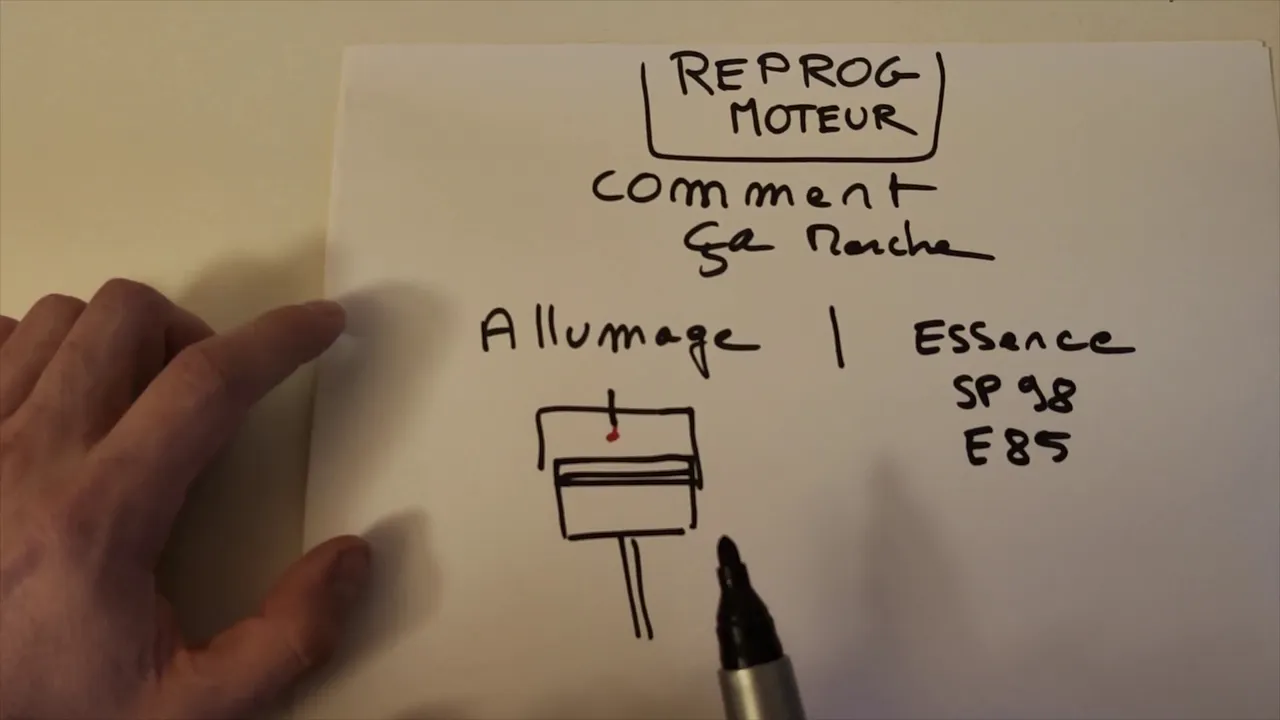 REPROG
MOTEUR
Comment
ça Marche
Allumage | Essence
SP 98
E 85